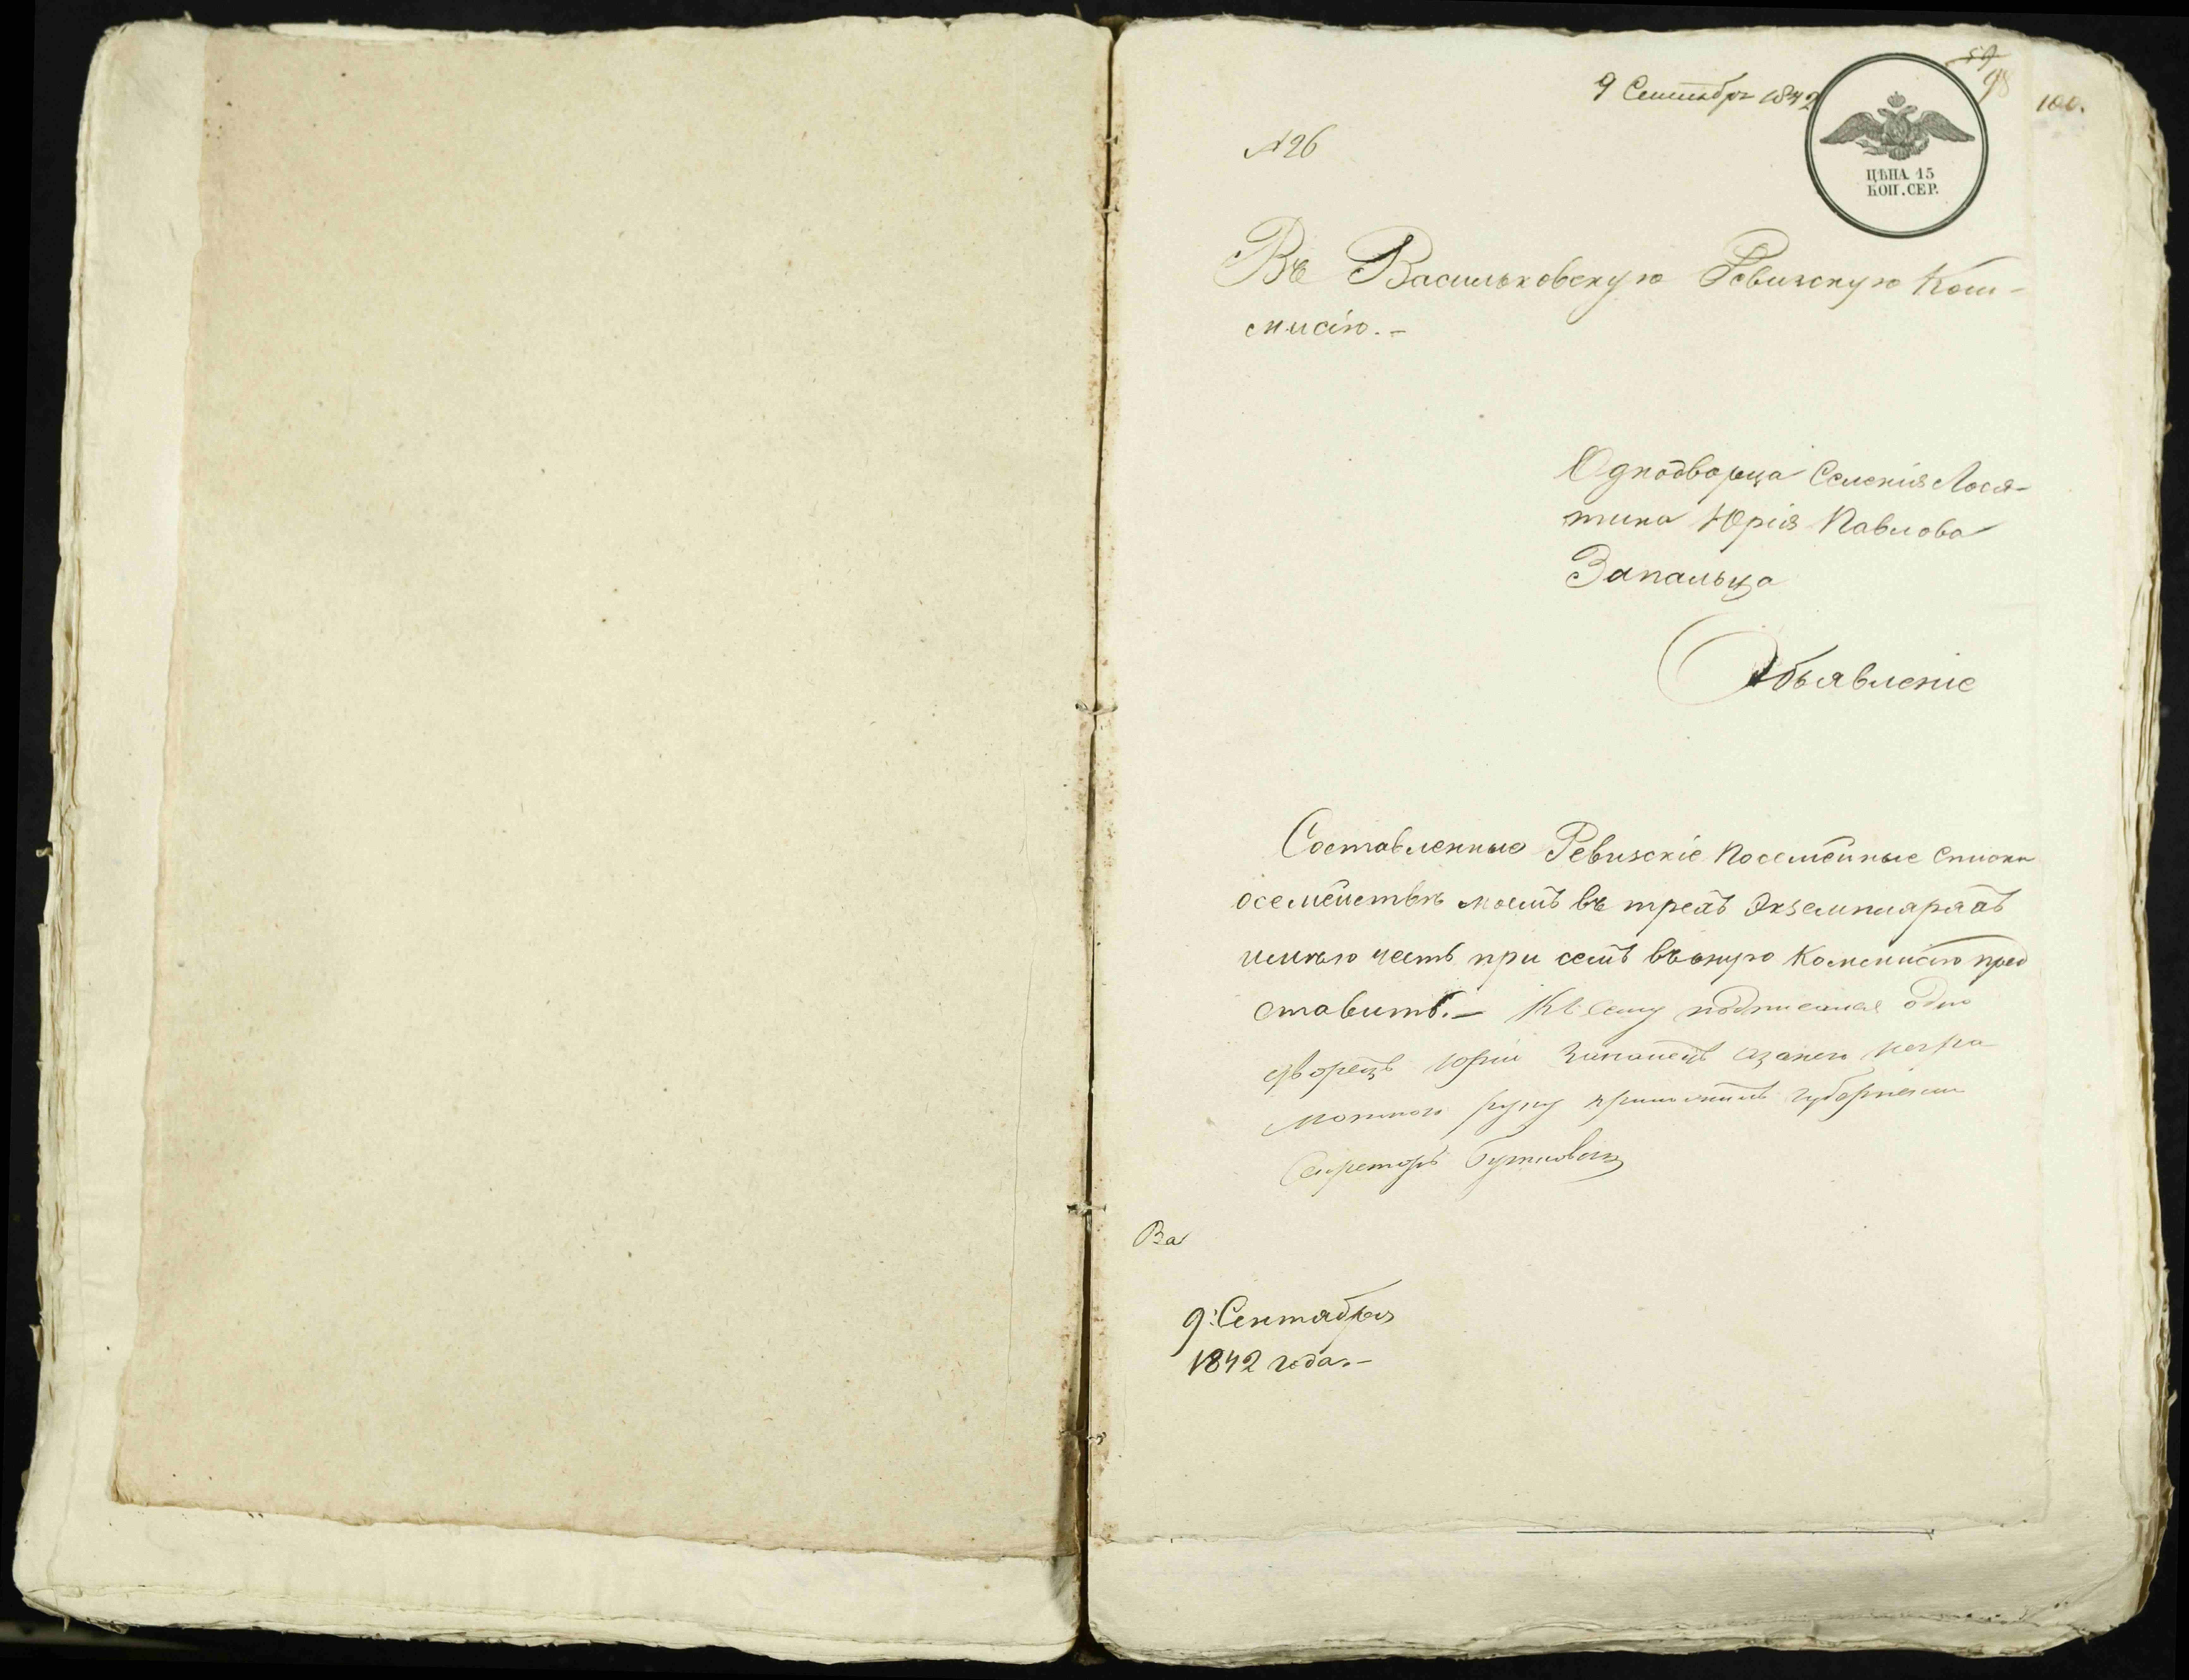 9 Сентября 1842
59
98
100.
№ 26
ЦѢНА 15
КОП. СЕР.
Въ Васильковскую Ревизскую Ком-
мисію.-
Однодворца Селенія Лося-
тина Юрія Павлова
Запальца
Объявленіе
Составленные Ревизскіе Посемейные Списки
осемействѣ моемъ въ трехъ Экземплярахъ
имѣю честь при семъ въоную Коммисію пред
ставить.- Къ сему однo
дворецъ Юрій Запалецъ азанего негра
мотного руку приложилъ губернскій
Секретарь
Ва
9: Сентября
1842 года.-